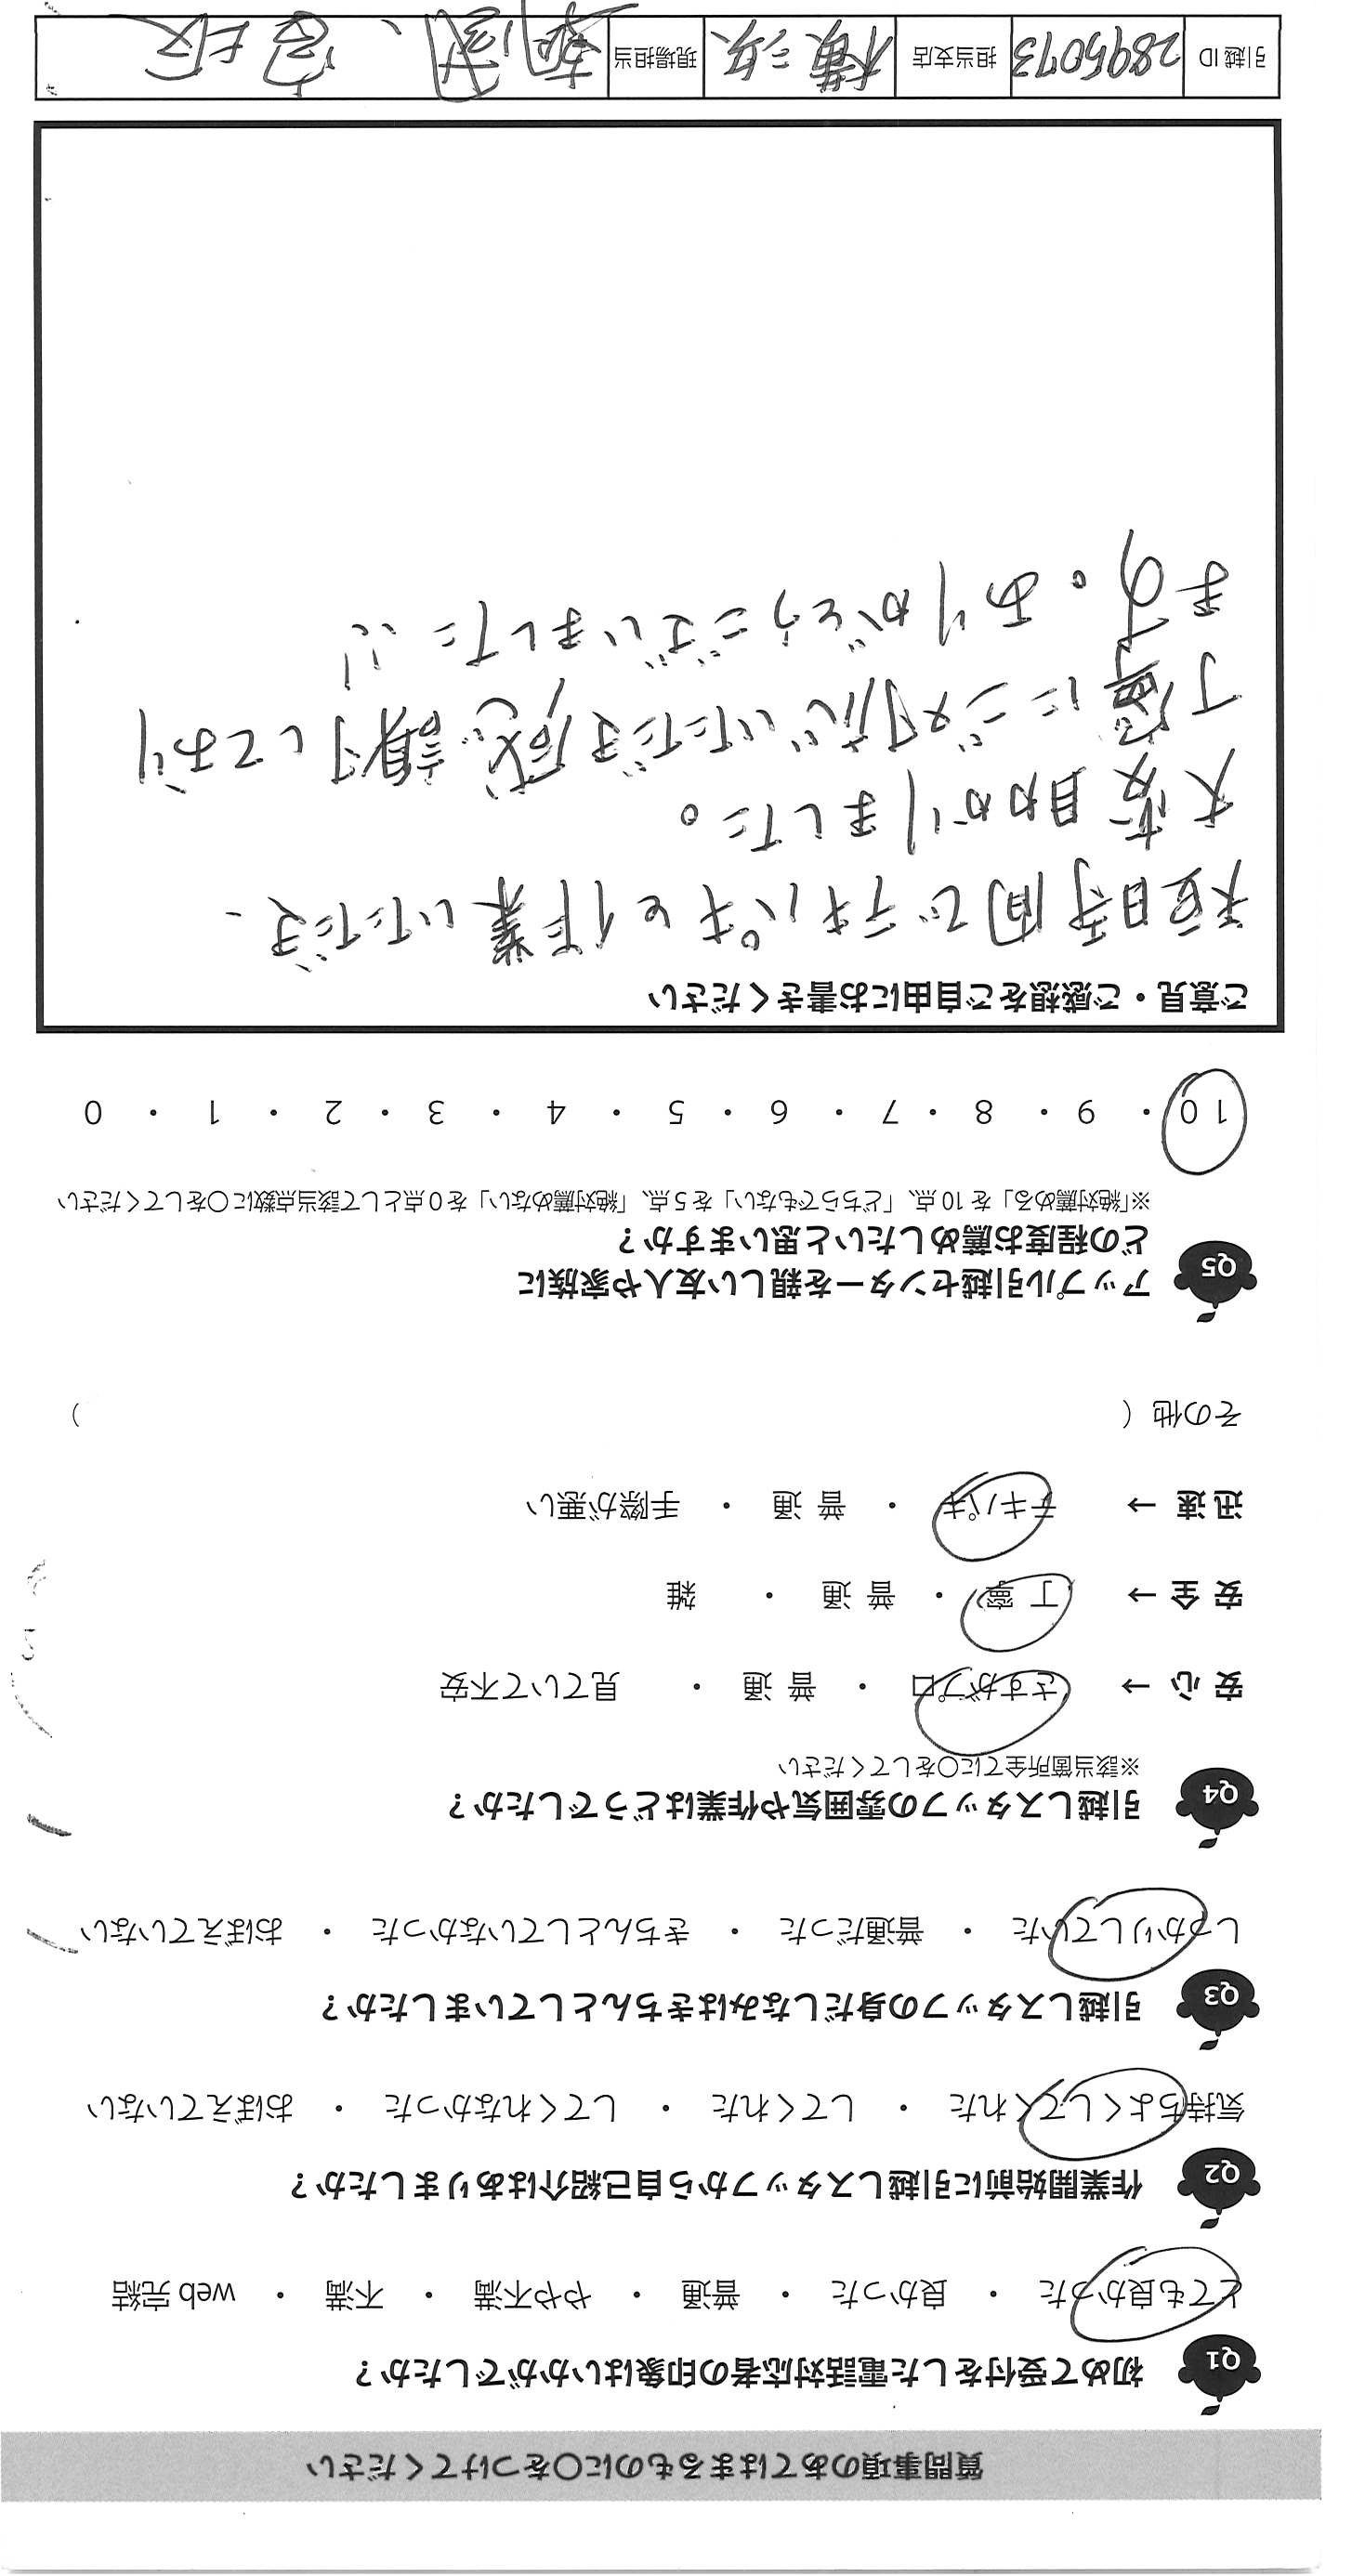 質問事項のあてはまるものに○をつけてください
Q1 初めて受付をした電話対応者の印象はいかがでしたか？
とても良かった ・ 良かった ・ 普通 ・ やや不満 ・ 不満 ・ web 完結
Q2 作業開始前に引越しスタッフから自己紹介はありましたか？
気持ちよくしてくれた ・ してくれた ・ してくれなかった ・ おぼえていない
Q3 引越しスタッフの身だしなみはきちんとしていましたか？
しっかりしていた ・ 普通だった ・ きちんとしていなかった ・ おぼえていない
Q4 引越しスタッフの雰囲気や作業はどうでしたか？
※該当箇所全てに○をしてください
安 心 → さすがプロ ・ 普 通 ・ 見ていて不安
安 全 → 丁 寧 ・ 普 通 ・ 雑
迅 速 → テキパキ ・ 普 通 ・ 手際が悪い
その他（ ）
Q5 アップル引越センターを親しい友人や家族に
どの程度お薦めしたいと思いますか？
※「絶対薦める」を 10 点、「どちらでもない」を 5 点、「絶対薦めない」を 0 点として該当点数に○をしてください
10 ・ 9 ・ 8 ・ 7 ・ 6 ・ 5 ・ 4 ・ 3 ・ 2 ・ 1 ・ 0
ご意見・ご感想をご自由にお書きください
短時間でテキパキと作業いただき、
大変助かりました。
丁寧にご対応いただき感謝しており
ます。ありがとうございました!!
引越 ID 2895073 担当支店 横浜 現場担当 宮坂